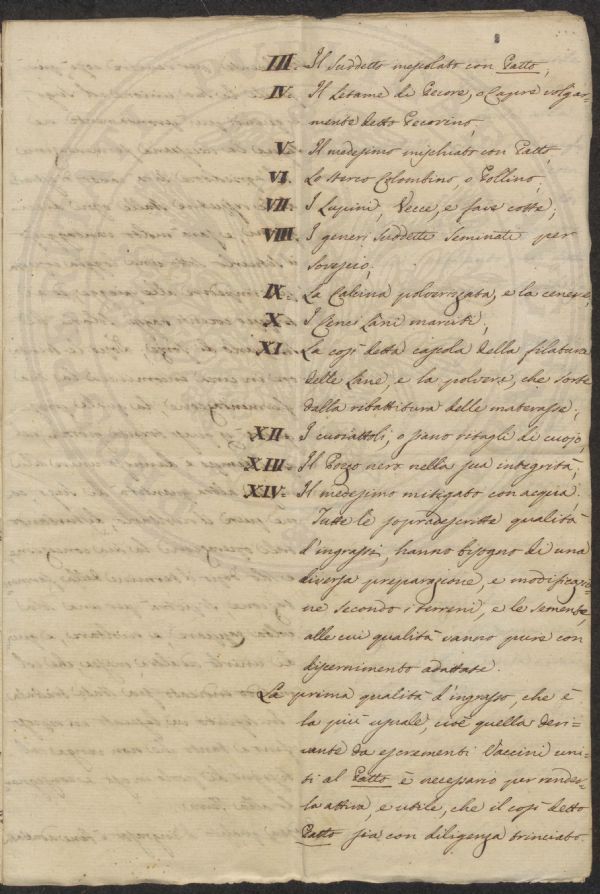 III. Il suddetto mescolato con Patto;
IV. Il Letame di Pecore, o Capre volgar-
mente detto Pecorino;
V. Il medesimo mischiato con Patto;
VI. Lo sterco Colombino, o Pollino;
VII. I Lupini, Vecce, e fave cotte;
VIII. I generi suddetti seminati per
sovescio;
IX. La Calcina polverizzata, e la cenere;
X. I Cenci Lani marciti;
XI. La così detta cascola della filatura
delle Lane, e la polvere, che sorte
dalla ribattitura delle materasse;
XII. I cuoiattoli, o siano ritagli di cuojo;
XIII. Il Pozzo nero nella sua integrità;
XIV. Il medesimo mitigato con acqua.
Tutte le sopradescritte qualità
d'ingrassi, hanno bisogno di una
diversa preparazione, e modificazio-
ne secondo i terreni, e le semente,
alle cui qualità vanno pure con
discernimento adattate.
La prima qualità d'ingrasso, che è
la più usuale, cioè quella deri-
vante da escrementi Vaccini uni-
ti al Patto è necessario per render-
la attiva, e utile, che il così detto
Patto sia con diligenza trinciato.